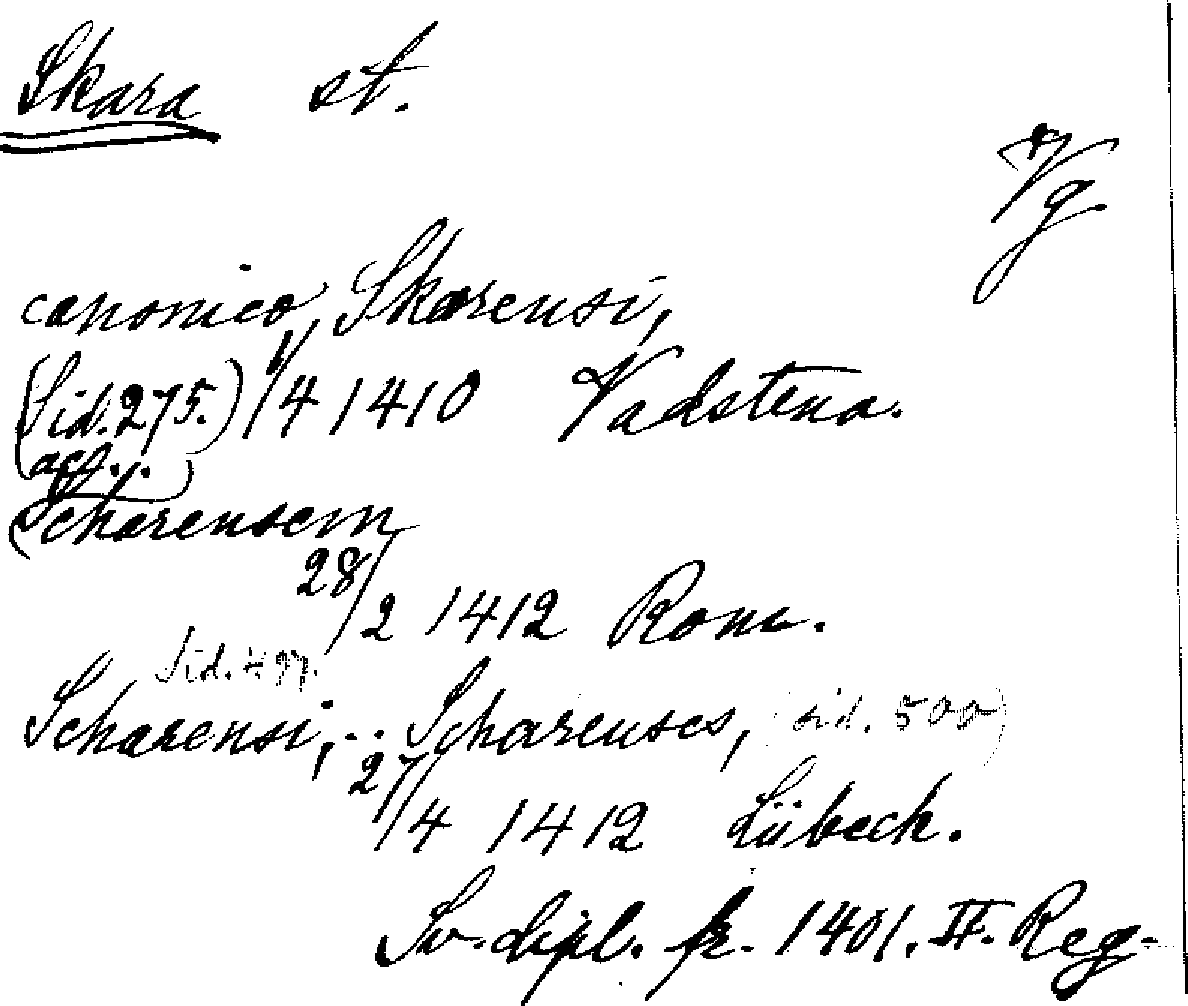 Skara st.
Vg
canonico Skarensi,
(Sid. 275.) 1/4 1410 Vadstena.
(acc.:)
Scharensem
28/2 1412 Rom.
Sid. 497.
Scharensi, .. Scharenses, (sid. 500)
27/4 1412 Lübeck.
Sv. dipl. fr. 1401. II. Reg.